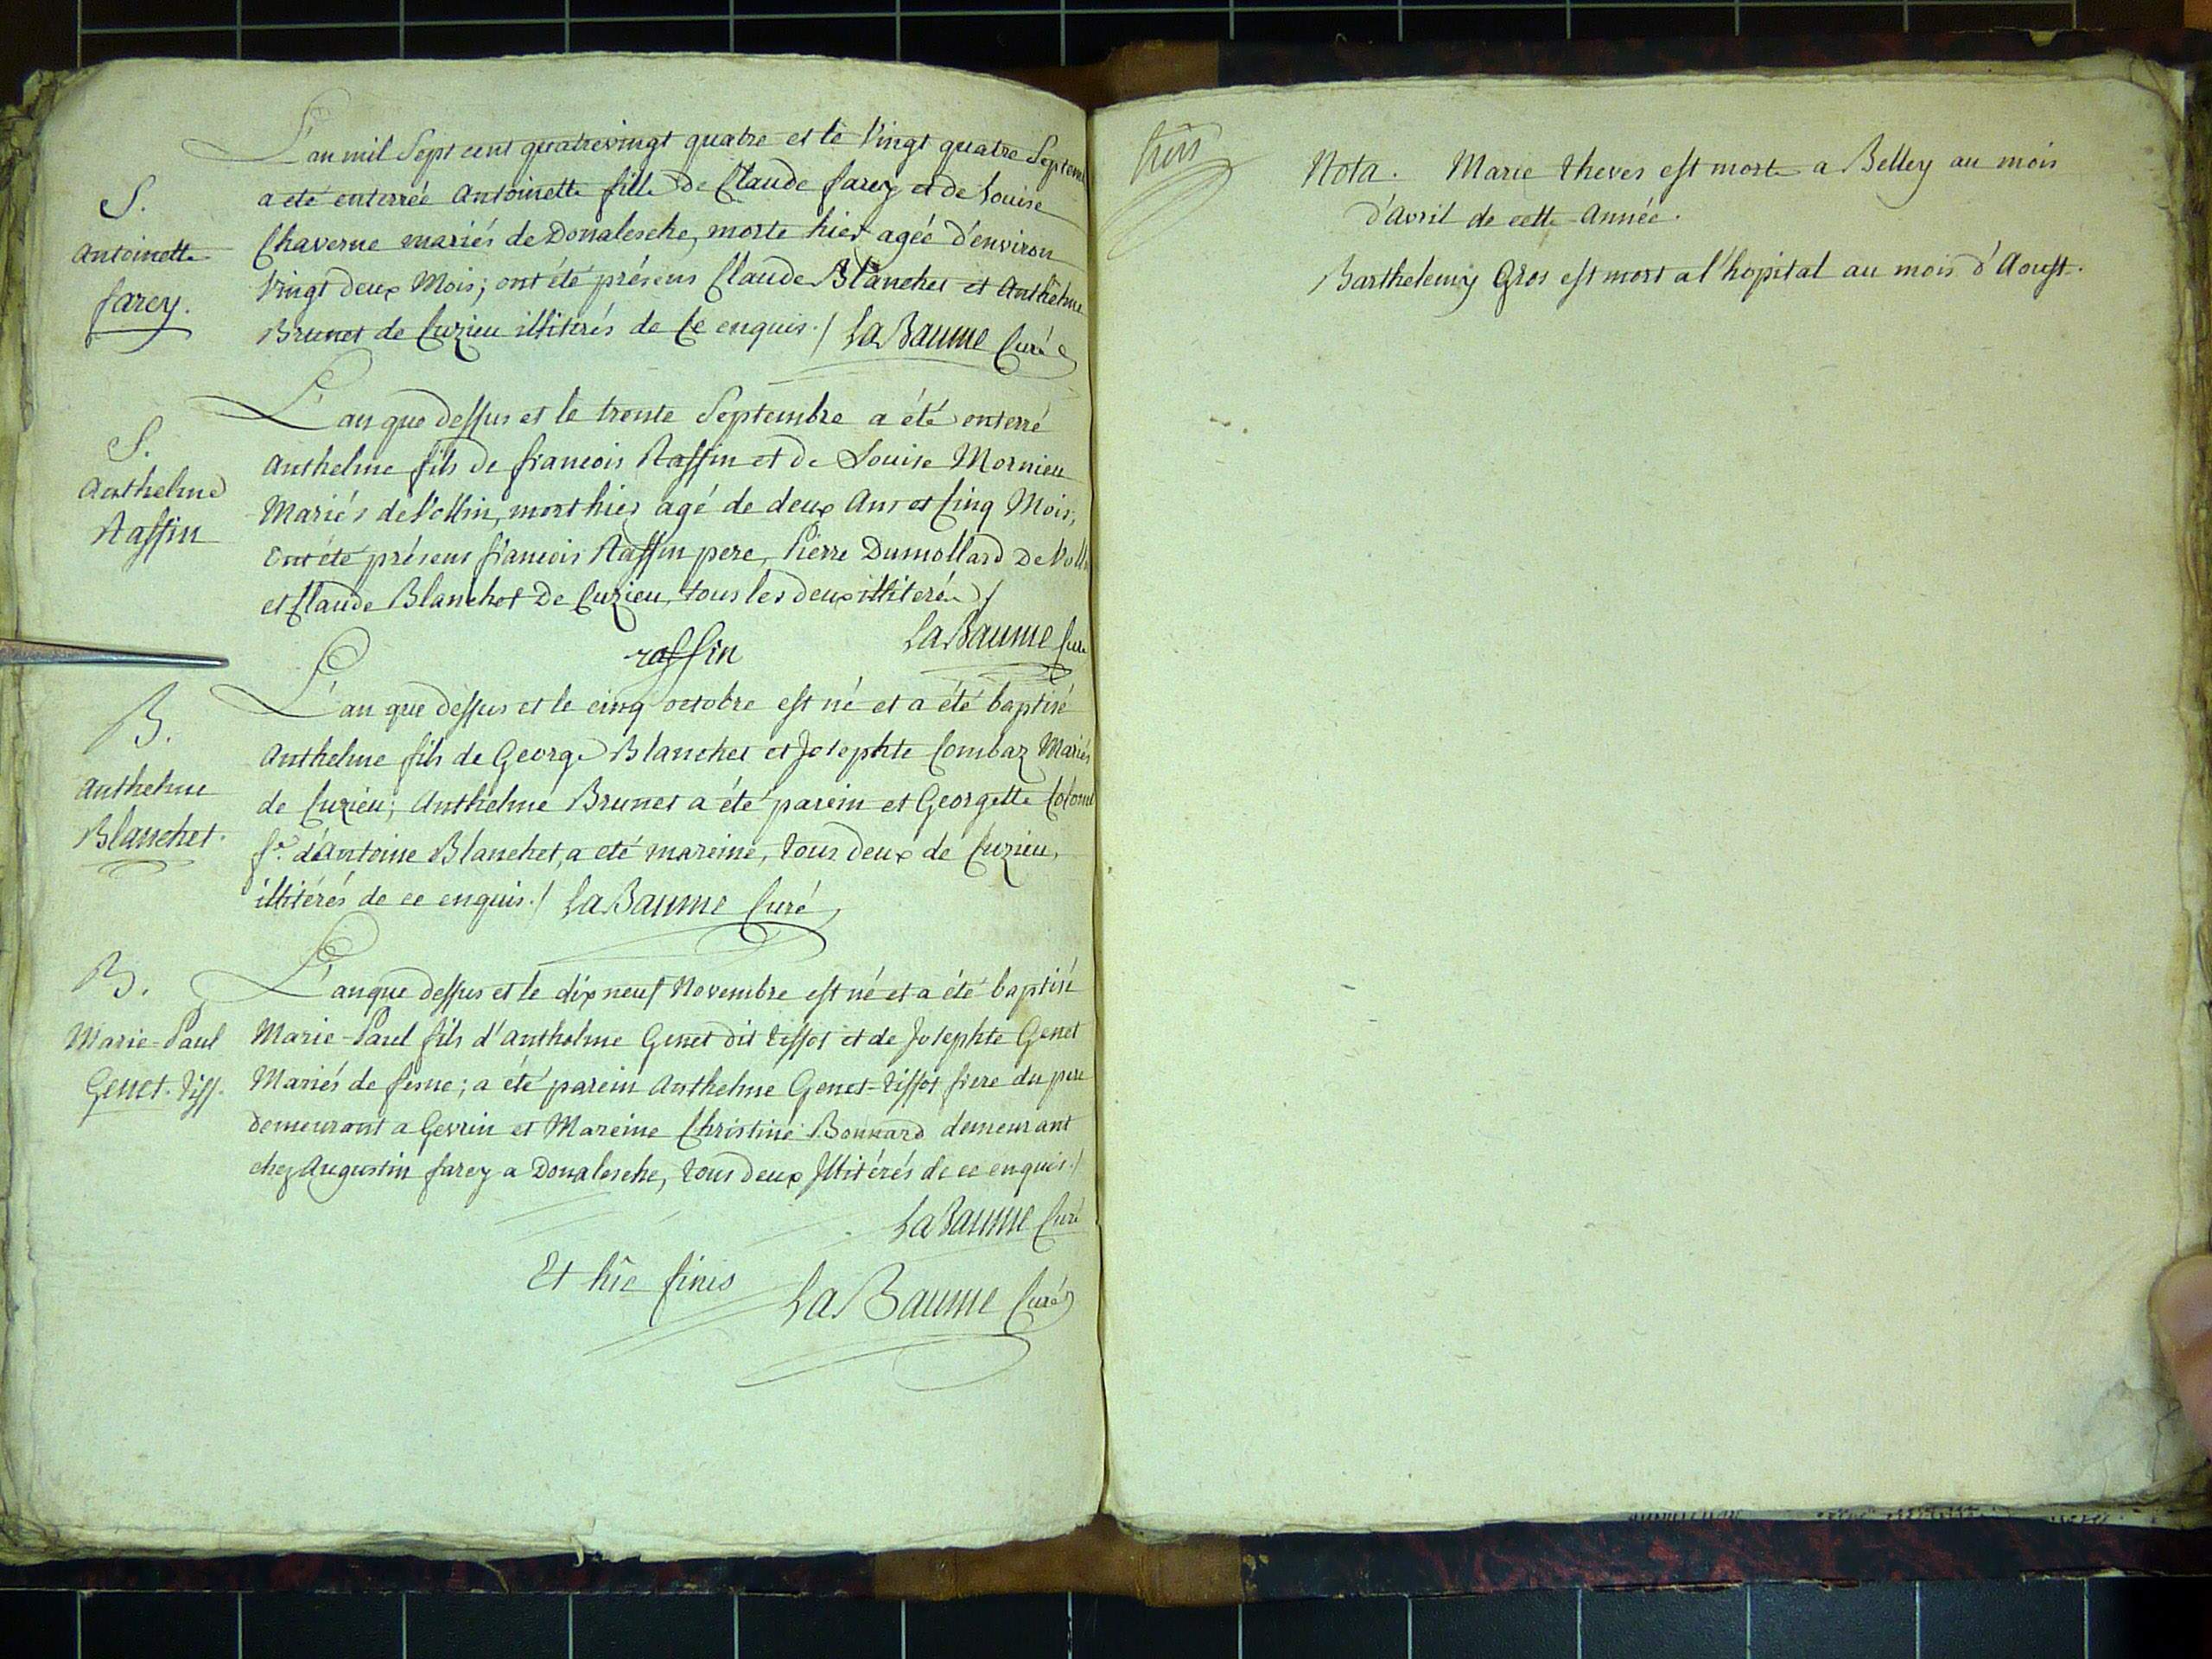 L'an mil Sept cent quatrevingt quatre et le Vingt quatre Septem
a eté enterrée Antoinette fille de Claude farcy et de Louise
Chaverne mariés de Donalesche, morte hier agée d'environ
Vingt deux Mois; ont été présens Claude Blanchet et Anthelme
Brunet de Cuzieu illitérés de Ce enquis./ LaBaume Curé
S.
Antoinette
farcy.
L'an que dessus et le trente Septembre a été enterré
Anthelme fils de francois Raffin et de Louise Mornieu
Mariés de Vollin, mort hier agé de deux Ans et Cinq Mois,
Ont été présens francois Raffin pere, Pierre Dumollard De Volli
et Claude Blanchet De Cuzieu, tous les deux illiterés /
raffin LaBaume Cure
S.
Anthelme
Raffin
L'an que dessus et le cinq octobre est né et a été baptisé
Anthelme fils de George Blanchet et Josephte Combaz Mariés
de Cuzieu; Anthelme Brunet a été parein et Georgette Colomb
fe. d'Antoine Blanchet, a eté mareine, tous deux de Cuzieu,
illitérés de ce enquis./ LaBaume Curé
B.
Anthelme
Blanchet.
L'an que dessus et le dix neuf Novembre est né et a été baptisé
Marie-Paul fils d'Anthelme Genet dit Tissot et de Josephte Genet
Mariés de ; a été parein Anthelme Genet-Tissot frere du pere
demeurant a Gevrin et Mareine Christine Bonnard demeurant
chez Augustin farcy a Donalesche, tous deux Illitérés de ce enquis./
LaBaume Curé
B.
Marie-Paul
Genet-Tiss.
Et hîc finis LaBaume Curé
Nota. Marie theves est morte a Belley au mois
d'Avril de cette Année.
Barthelemy Gros est mort a l'hopital au mois d'Aoust.